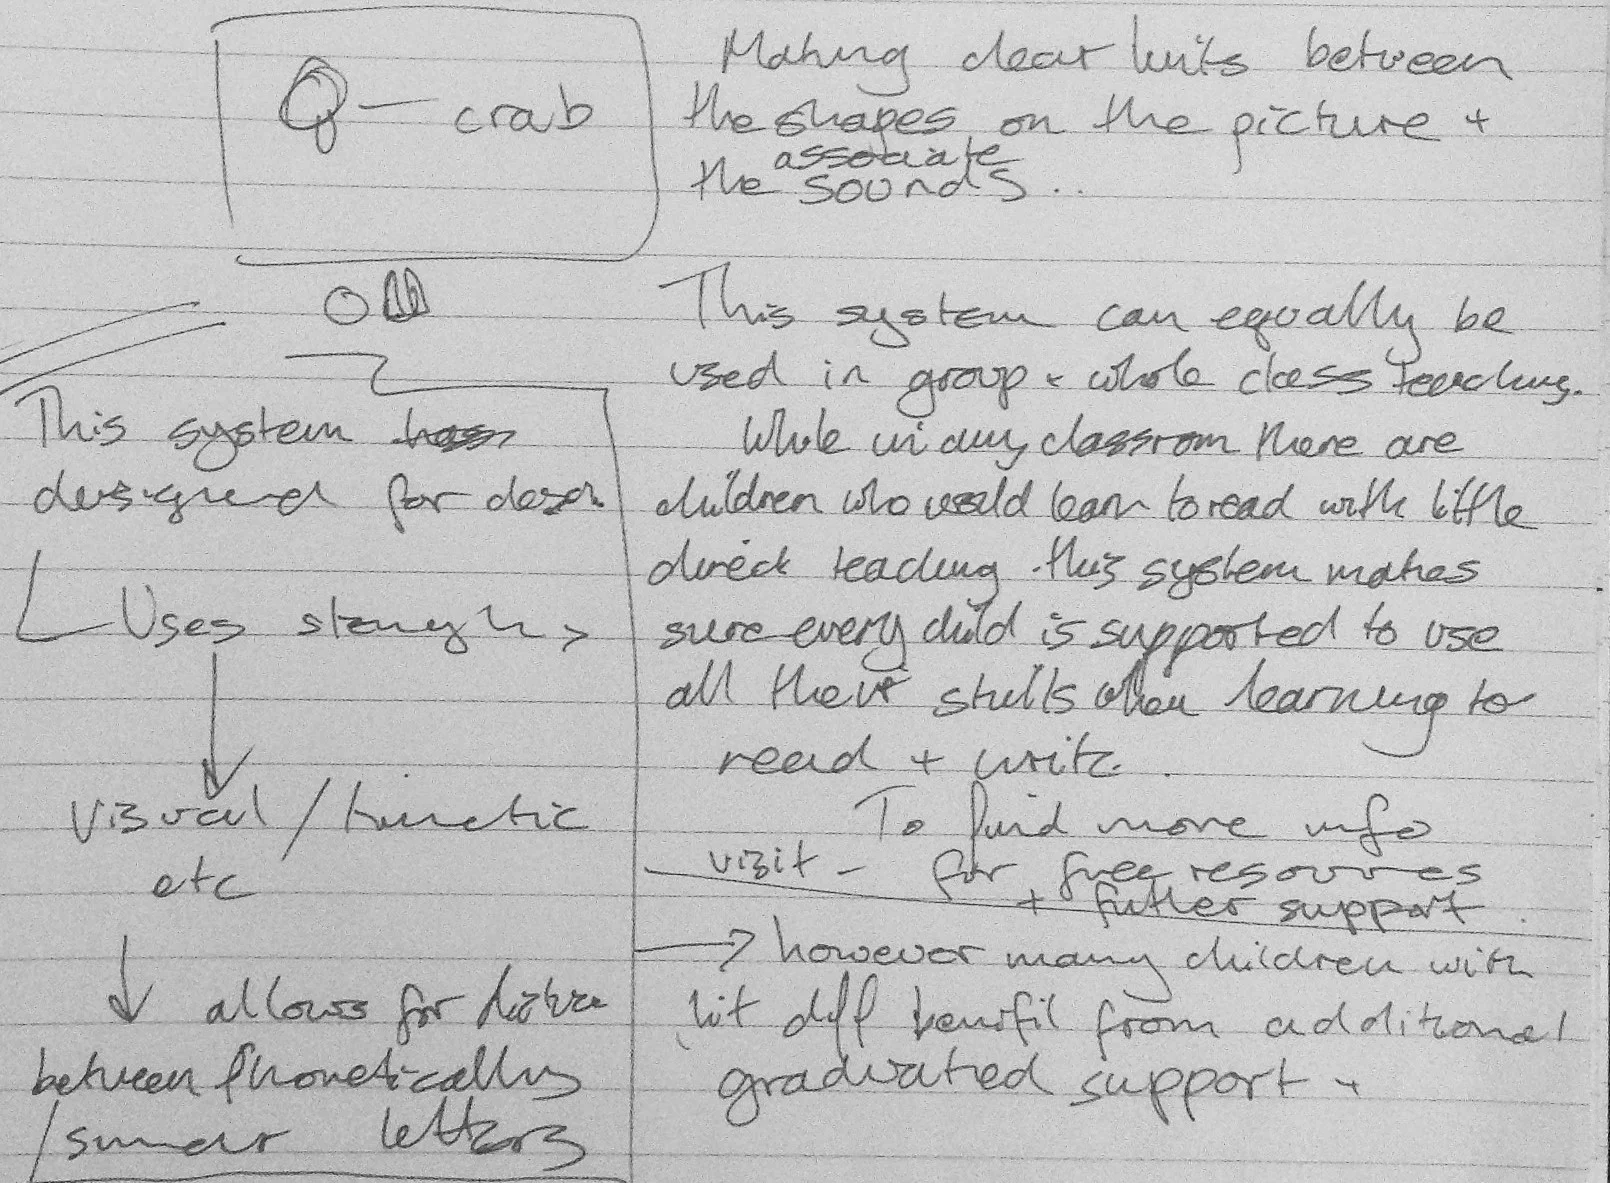 Q — crab
Making clear links between
the shapes on the picture +
the associate sounds ..
This system can equally be
used in group + whole class teaching.
While in any classrom there are
children who would learn to read with little
direct teaching . this system makes
sure every child is supported to use
all their skills when learning to
read + write.
To find more info
visit – for free resources
+ futher support.
→ however many children with
lit diff benifit from additional
graduated support +
This system
designed for
Uses
visual / kinetic
etc
allows for
between phonetically
/ similar letters